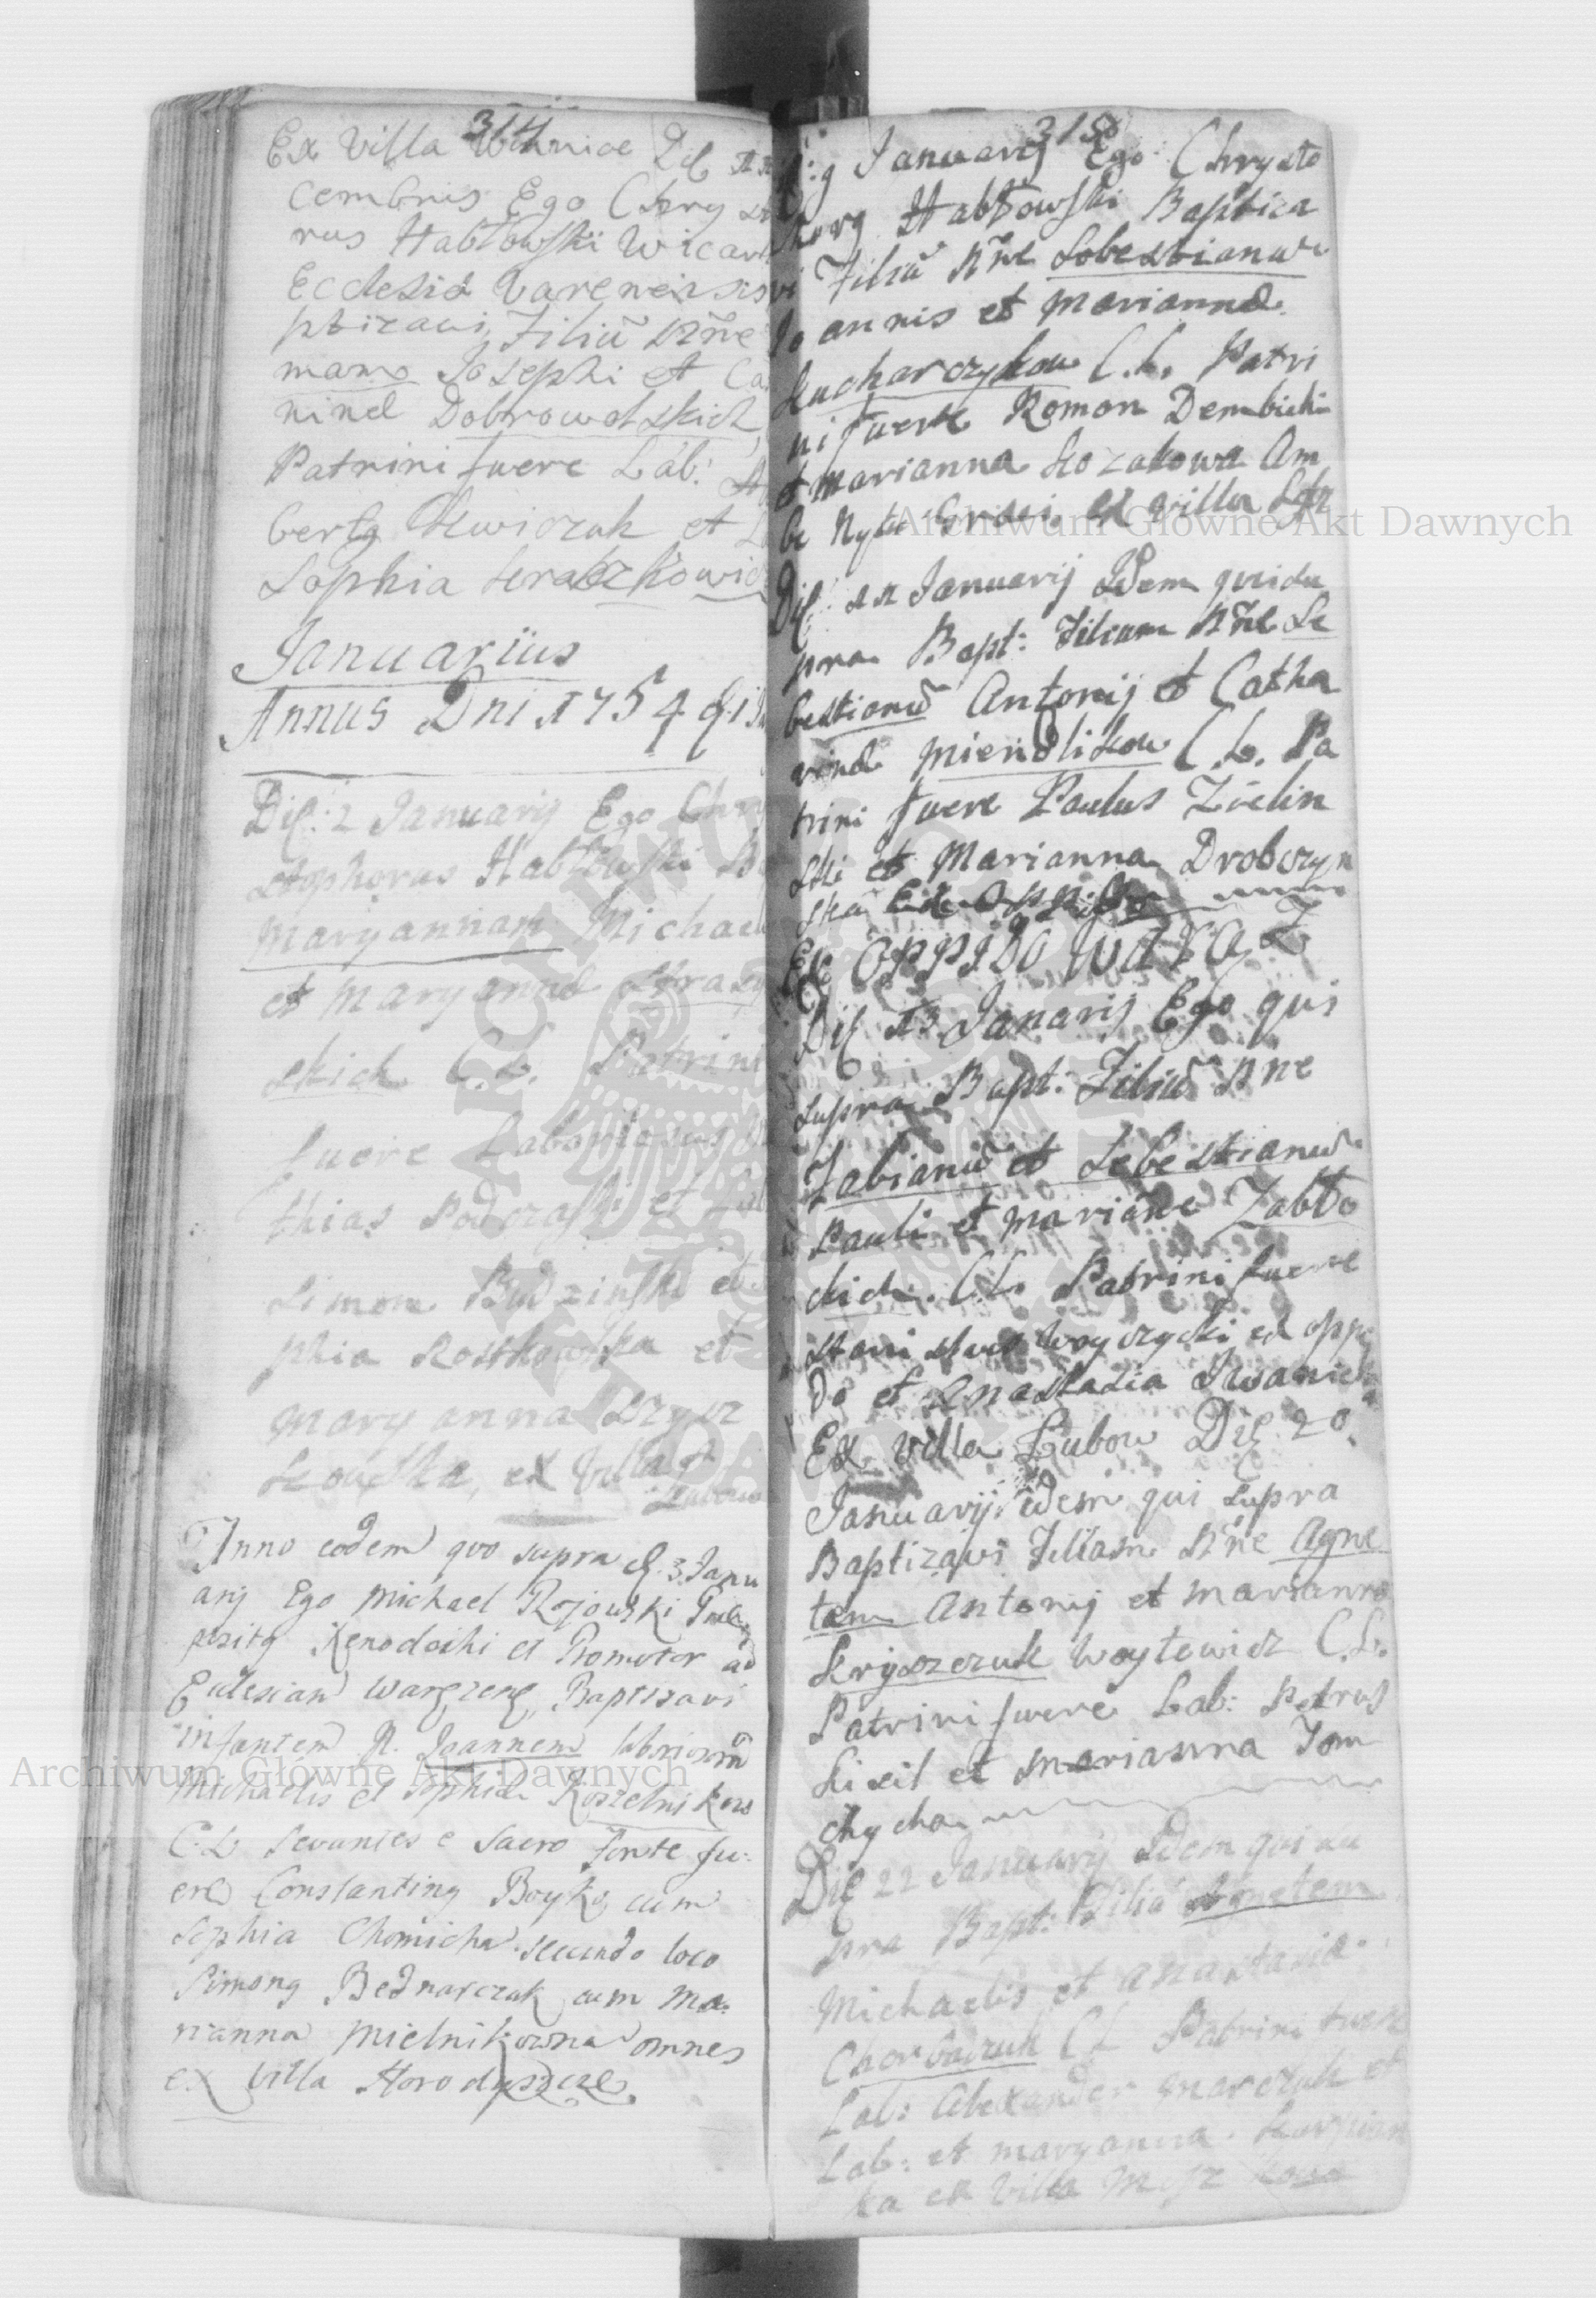 314
Ex Villa Uhrinice Die
cembris Ego Chry
rus Habłowski Wicari
Ecclesiæ Varenensis
ptizavi Filiū Nñe
mam Josephi et Ca
rinæ Dobrowolskich
Patrini fuere Lab:
berty Kwiczak et
Sophia
Januariüs
Annus Dni 1754
Die: 2 Januarij Ego Chry
stophorus Habłowski
Maryannam Michael
et Maryannæ
skich C.L. Patrini
fuere Laboriosus
thias Podczaski et
Simon Budzinski et
phia Rostkowska et
Maryanna
ex Villa
Anno eodem quo supra d. 3 Janu
arij Ego Michael Rojowski Præ
positg Xenodochi et Promotor ad
Eclesiam Waręzenę, Baptisavi
infantem N. Joannem laboriosorū
Michaelis et Sophiæ Koscelnikow
C.L. Levantes e sacro Fonte fu:
ere Constanting Boyko cum
Sophia Chomicha secundo loco
Simong Bednarczuk cum Ma:
rianna Mielnikowna omnes
ex Villa Horodyszcze
315
9 Januarij Ego Chrysto
phorg Habłowski Baptiza
vi Filiū Nñe Sebestianum
Joannis et Mariannæ
Kucharczykow C.L. Patri
ni fuere Roman Dembicki
et Marianna Kozakowa Am
bo ex villa
Die: 11 Januarij Idem qui su
pra Bapt: Filium Nñe Se
bestianū Antonij et Catha
rinæ Miendlikow C.L. Pa
trini fuere Paulus Zielin
ski et Marianna Drobczyn
ska
Ex Oppido Waręz
Die 13 Janarij Ego qui
supra Bapt: Filiū Nne
Fabianū et Sebestianum
Pauli et Mariañe Zabło
ckich. C.L. Patrini fuere
Stanislaus Woyczycki ex oppi
do et Anastasia Iwanicka
Ex villa Lubow Die 20
Januarij idem qui supra
Baptizavi Filiam Nñe Agne
tem Antonij et Marianna
Kryszczuk Woytewicz C.L.
Patrini fuere Lab: Petrus
Kisil et Marianna Tom
chycha
Die 22 Januarij Idem qui su
pra Bapt: Filiā Agnetem
Michaelis et Anastasiæ
C.L. Patrini fuere
Lab: Alexander Marczuk et
Lab: et Maryanna
ka ex Villa
Archiwum Główne Akt Dawnych
Archiwum Główne Akt Dawnych